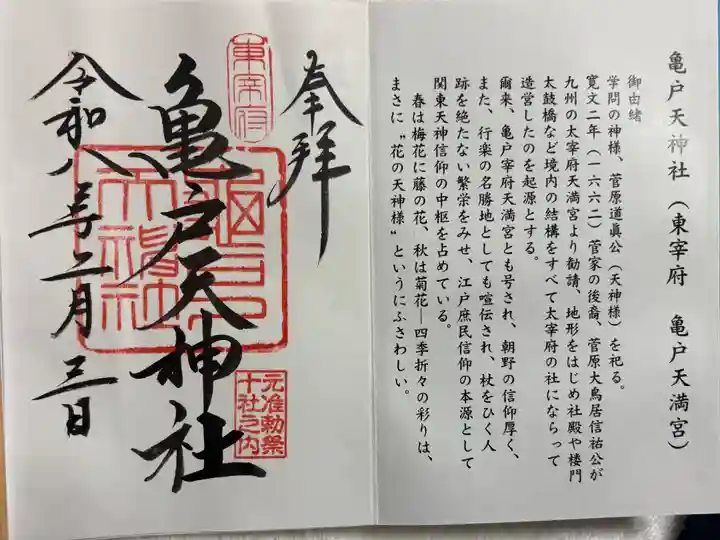 亀戸天神社(東宰府 亀戸天満宮)
御由緒
学問の神様、菅原道眞公(天神様)を祀る。
寛文二年(一六六二)菅家の後裔、菅原大鳥居信祐公が
九州の太宰府天満宮より勧請、地形をはじめ社殿や楼門
太鼓橋など境内の結構をすべて太宰府の社にならって
造営したのを起源とする。
爾来、亀戸宰府天満宮とも号され、朝野の信仰厚く、
また、行楽の名勝地としても喧伝され、杖をひく人
跡を絶たない繁栄をみせ、江戸庶民信仰の本源として
関東天神信仰の中枢を占めている。
春は梅花に藤の花、秋は菊花―四季折々の彩りは、
まさに〝花の天神様〟というにふさわしい。
奉拝
東宰府
亀戸天神社
亀戸天神社
元准勅祭
十社之内
令和八年二月三日